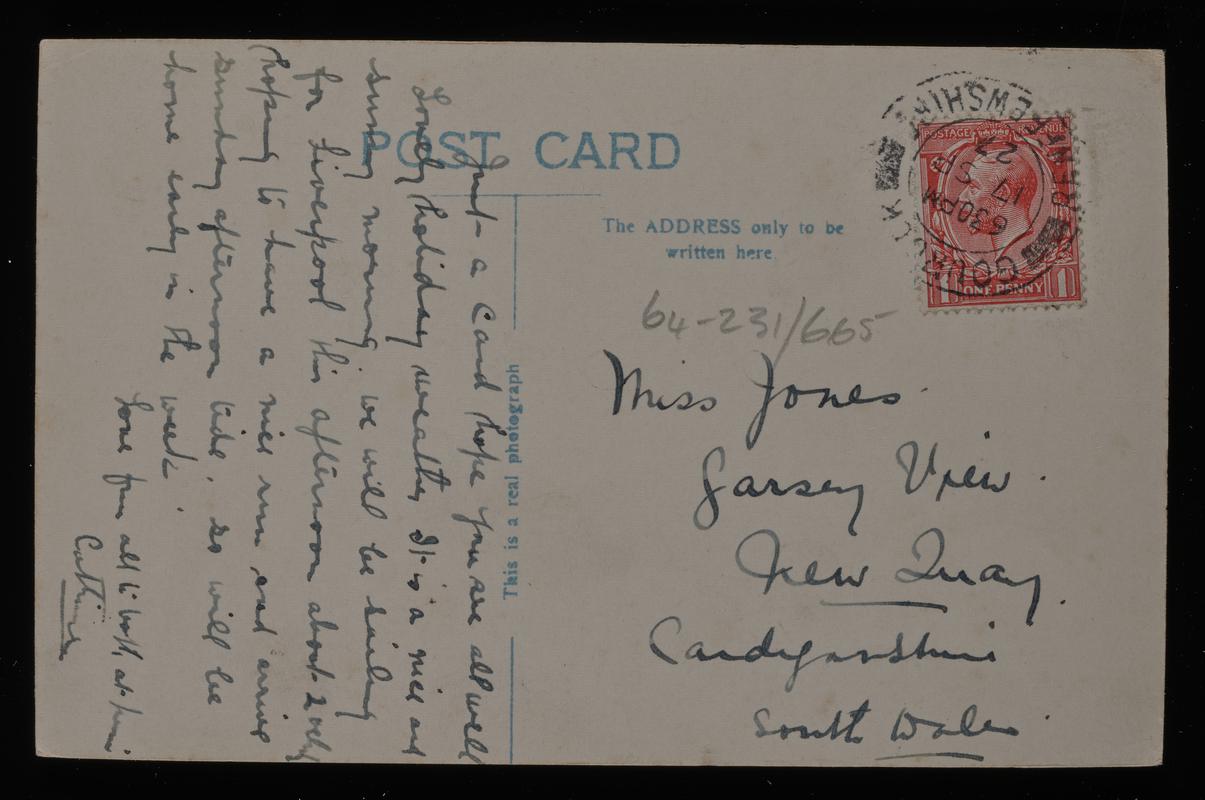 POST CARD
The ADDRESS only to be
written here.
This is a real photograph
POSTAGE REVENUE
1 ONE PENNY 1
GOUROCK
RENFREWSHIRE
630PM
17 SP
27
64-231/665
Miss Jones
Garsey View.
New Quay.
Cardiganshire
South Wales
Just a Card hope you are all well
Lovely holiday weather It is a nice and
sunny morning we will be sailing
for Liverpool this afternoon about 2 o'clock
hoping to have a nice run and arrive
Sunday afternoon tide. so will be
home early in the week.
Love from all to both at home